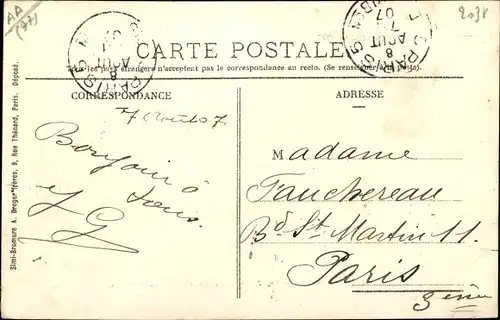 AA
(77)
2038
CARTE POSTALE
Tous les pays étrangers n'acceptent pas la correspondance au recto. (Se renseigner à la poste).
CORRESPONDANCE
ADRESSE
7 Août 07
Bonjour à
tous.
Madame
Fauchereau
Bd St Martin 11
Paris
3ème
PARIS
8
AOUT
PARIS
8
AOUT
7
07
Simi-Bromure A. Breger frères, 9, Rue Thénard, Paris. Déposé.